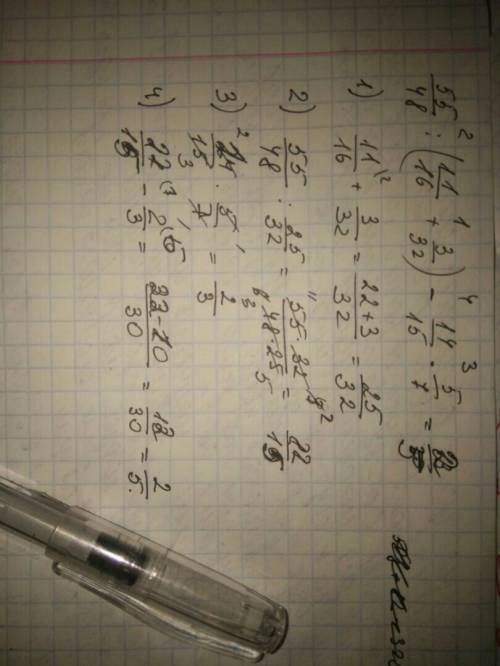 55/48 : (11/16 + 3/32) - 14/15 · 5/7 =
1) 11/16 + 3/32 = 22+3/32 = 25/32
2) 55/48 : 25/32 = 55·32/48·25 = 22/15
3) 14/15 · 5/7 = 2/3
4) 22/15 - 2/3 = 22-10/30 = 12/30 = 2/5.